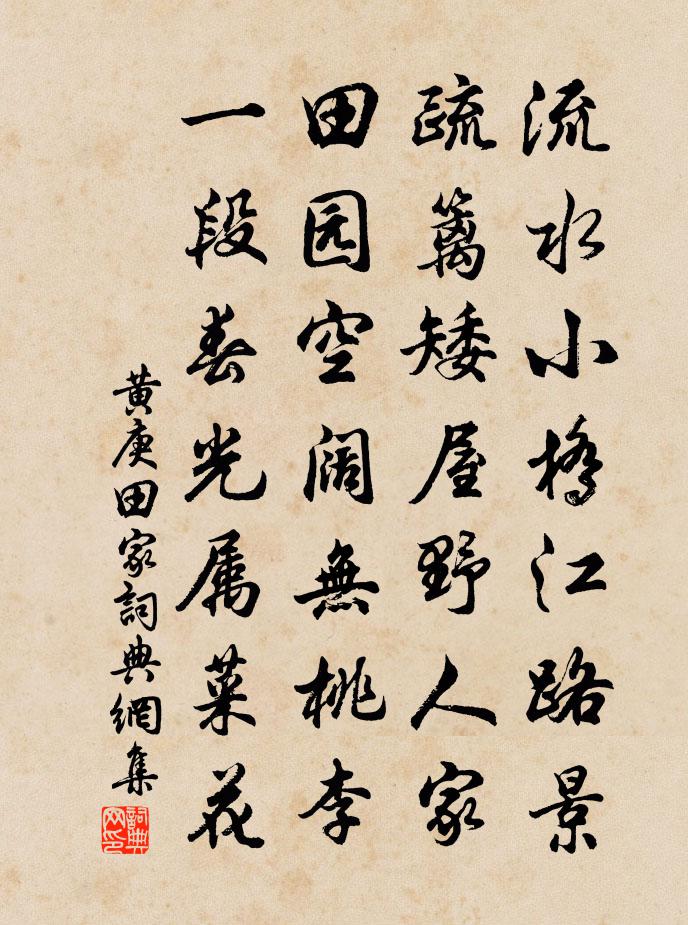 流水小橋江路景
疏篱矮屋野人家
田园空阔無桃李
一段春光属菜花
黄庚田家詞典網集
詞典网印